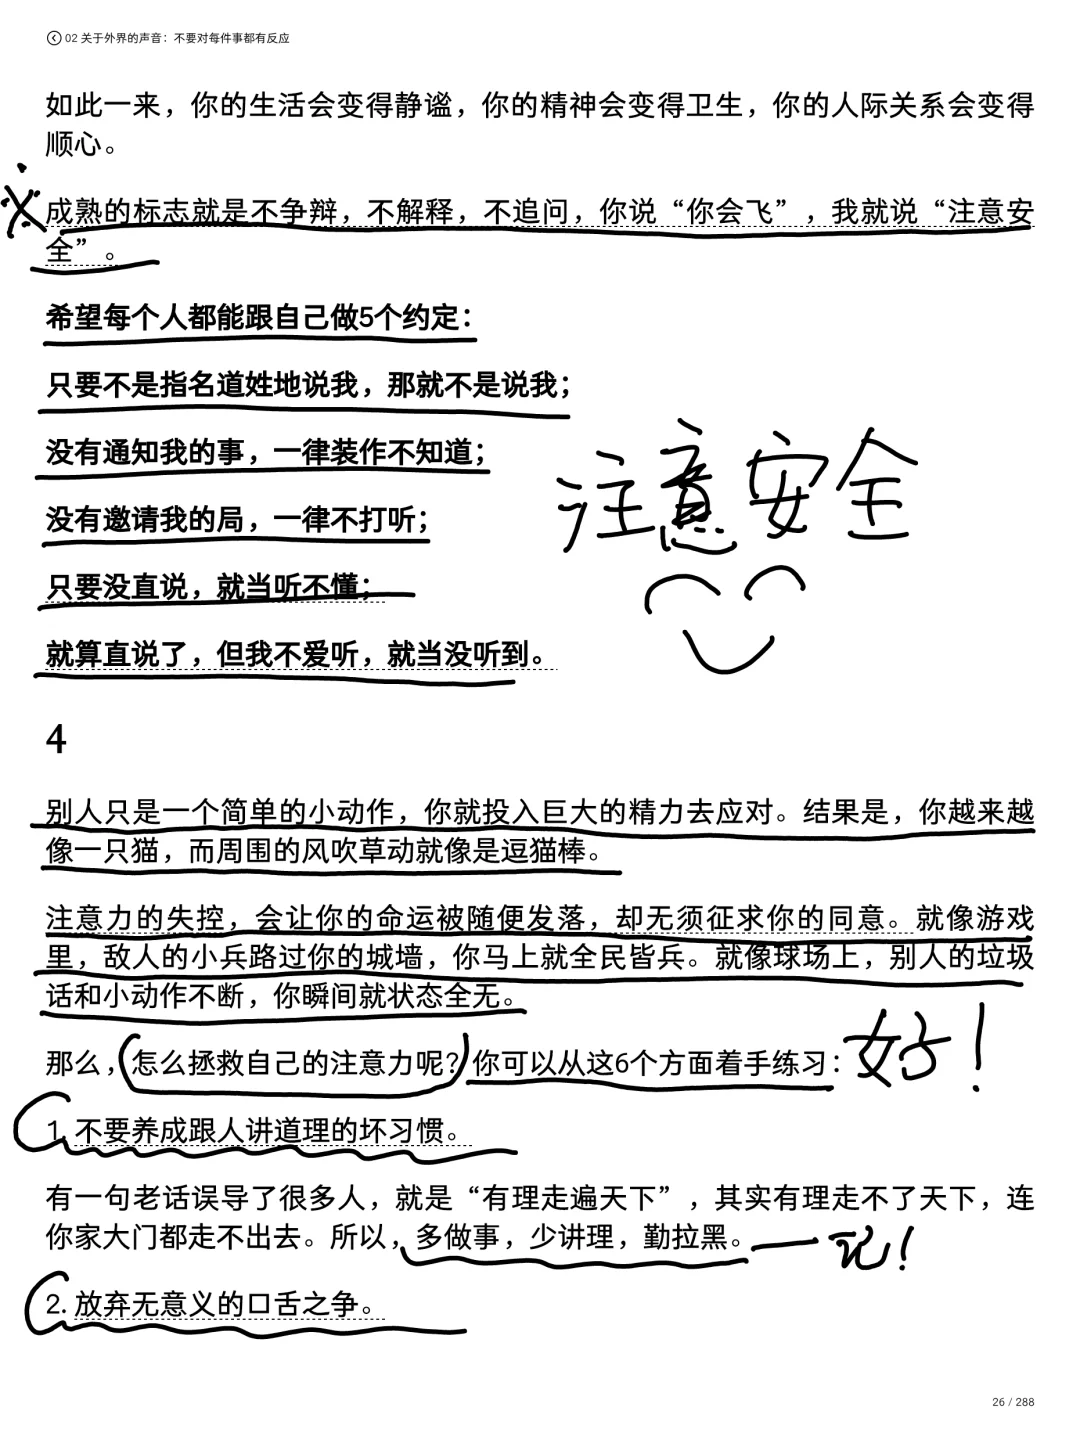 02 关于外界的声音：不要对每件事都有反应
如此一来，你的生活会变得静谧，你的精神会变得卫生，你的人际关系会变得
顺心。
成熟的标志就是不争辩，不解释，不追问，你说“你会飞”，我就说“注意安
全”。
希望每个人都能跟自己做5个约定：
只要不是指名道姓地说我，那就不是说我；
没有通知我的事，一律装作不知道；
没有邀请我的局，一律不打听；
注意安全
只要没直说，就当听不懂；
就算直说了，但我不爱听，就当没听到。
4
别人只是一个简单的小动作，你就投入巨大的精力去应对。结果是，你越来越
像一只猫，而周围的风吹草动就像是逗猫棒。
注意力的失控，会让你的命运被随便发落，却无须征求你的同意。就像游戏
里，敌人的小兵路过你的城墙，你马上就全民皆兵。就像球场上，别人的垃圾
话和小动作不断，你瞬间就状态全无。
那么，怎么拯救自己的注意力呢？你可以从这6个方面着手练习：
好！
1. 不要养成跟人讲道理的坏习惯。
有一句老话误导了很多人，就是“有理走遍天下”，其实有理走不了天下，连
你家大门都走不出去。所以，多做事，少讲理，勤拉黑。
记！
2. 放弃无意义的口舌之争。
26 / 288